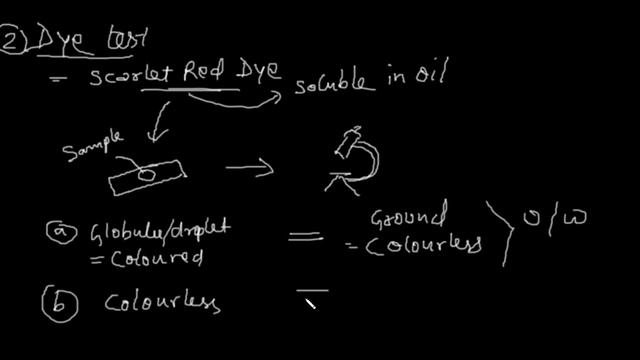 2) Dye test
= Scarlet Red Dye
soluble in oil
Sample
a Globule/droplet = Ground
= Coloured = Colourless O/W
b Colourless =